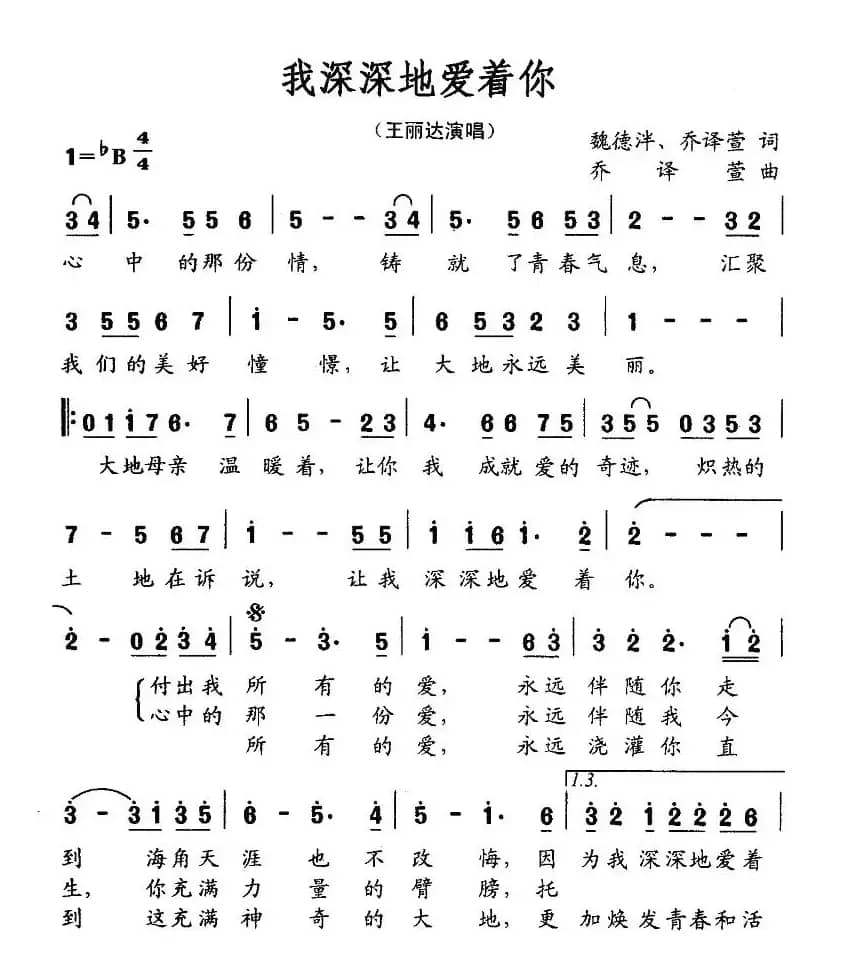 我深深地爱着你
（王丽达演唱）
1=♭B 4/4
魏德泮、乔译萱 词
乔 译 萱 曲
3 4 | 5· 5 5 6 | 5 - - 3 4 | 5· 5 6 5 3 | 2 - - 3 2 |
心 中 的那 份 情， 铸 就 了青春气 息， 汇聚
3 5 5 6 7 | i - 5· 5 | 6 5 3 2 3 | 1 - - - |
我们的美好 憧 憬，让 大 地永远美 丽。
‖: 0 1 i 7 6· 7 | 6 5 - 2 3 | 4· 6 6 7 5 | 3 5 5 0 3 5 3 |
大地母亲 温 暖着，让你 我 成就 爱的 奇迹， 炽热的
7 - 5 6 7 | i - - 5 5 | i i 6 i· 2̇ | 2̇ - - - |
土 地在诉 说， 让我 深深地爱 着 你。
2̇ - 0 2̇ 3̇ 4̇ | 5̇ - 3̇· 5 | i - - 6 3̇ | 3̇ 2̇ 2̇· i 2̇ |
付出我 所 有 的 爱， 永远 伴 随 你 走
心中的 那 一 份 爱， 永远 伴 随 我 今
所 有 的 爱， 永远 浇 灌 你 直
1.3.
3̇ - 3̇ i 3̇ 5̇ | 6̇ - 5̇· 4̇ | 5̇ - i· 6 | 3̇ 2̇ i 2̇ 2̇ 2̇ 6 |
到 海角天 涯 也 不 改 悔，因 为我 深深地爱着
生， 你充满 力 量 的 臂 膀，托
到 这充满 神 奇 的 大 地，更 加焕 发青春和活